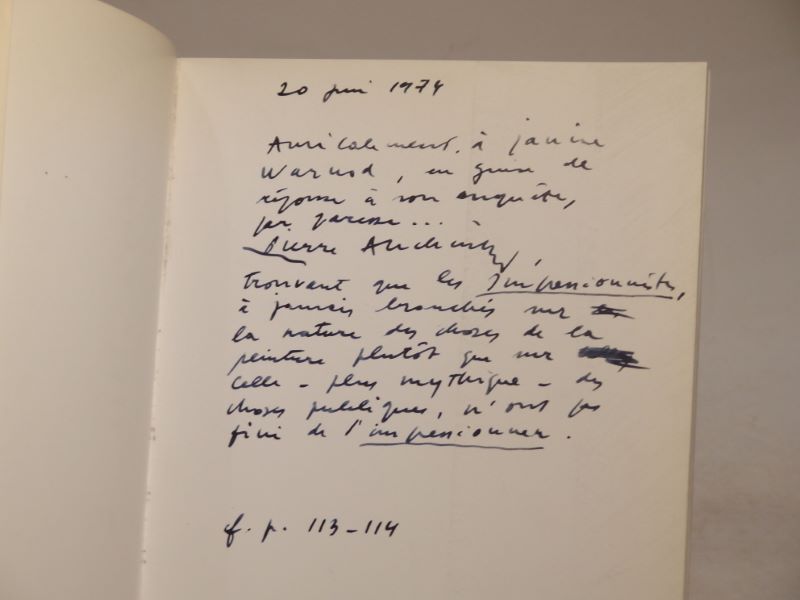 20 juin 1974
Amicalement, à Janine
Warnod, en guise de
réponse à son enquête,
par paresse...
Pierre Alechinsky,
trouvant que les impressionnistes,
à jamais branchés sur
la nature des choses de la
peinture plutôt que sur
celle - plus mythique - des
choses publiques, n'ont pas
fini de l'impressionner.
f. p. 113-114